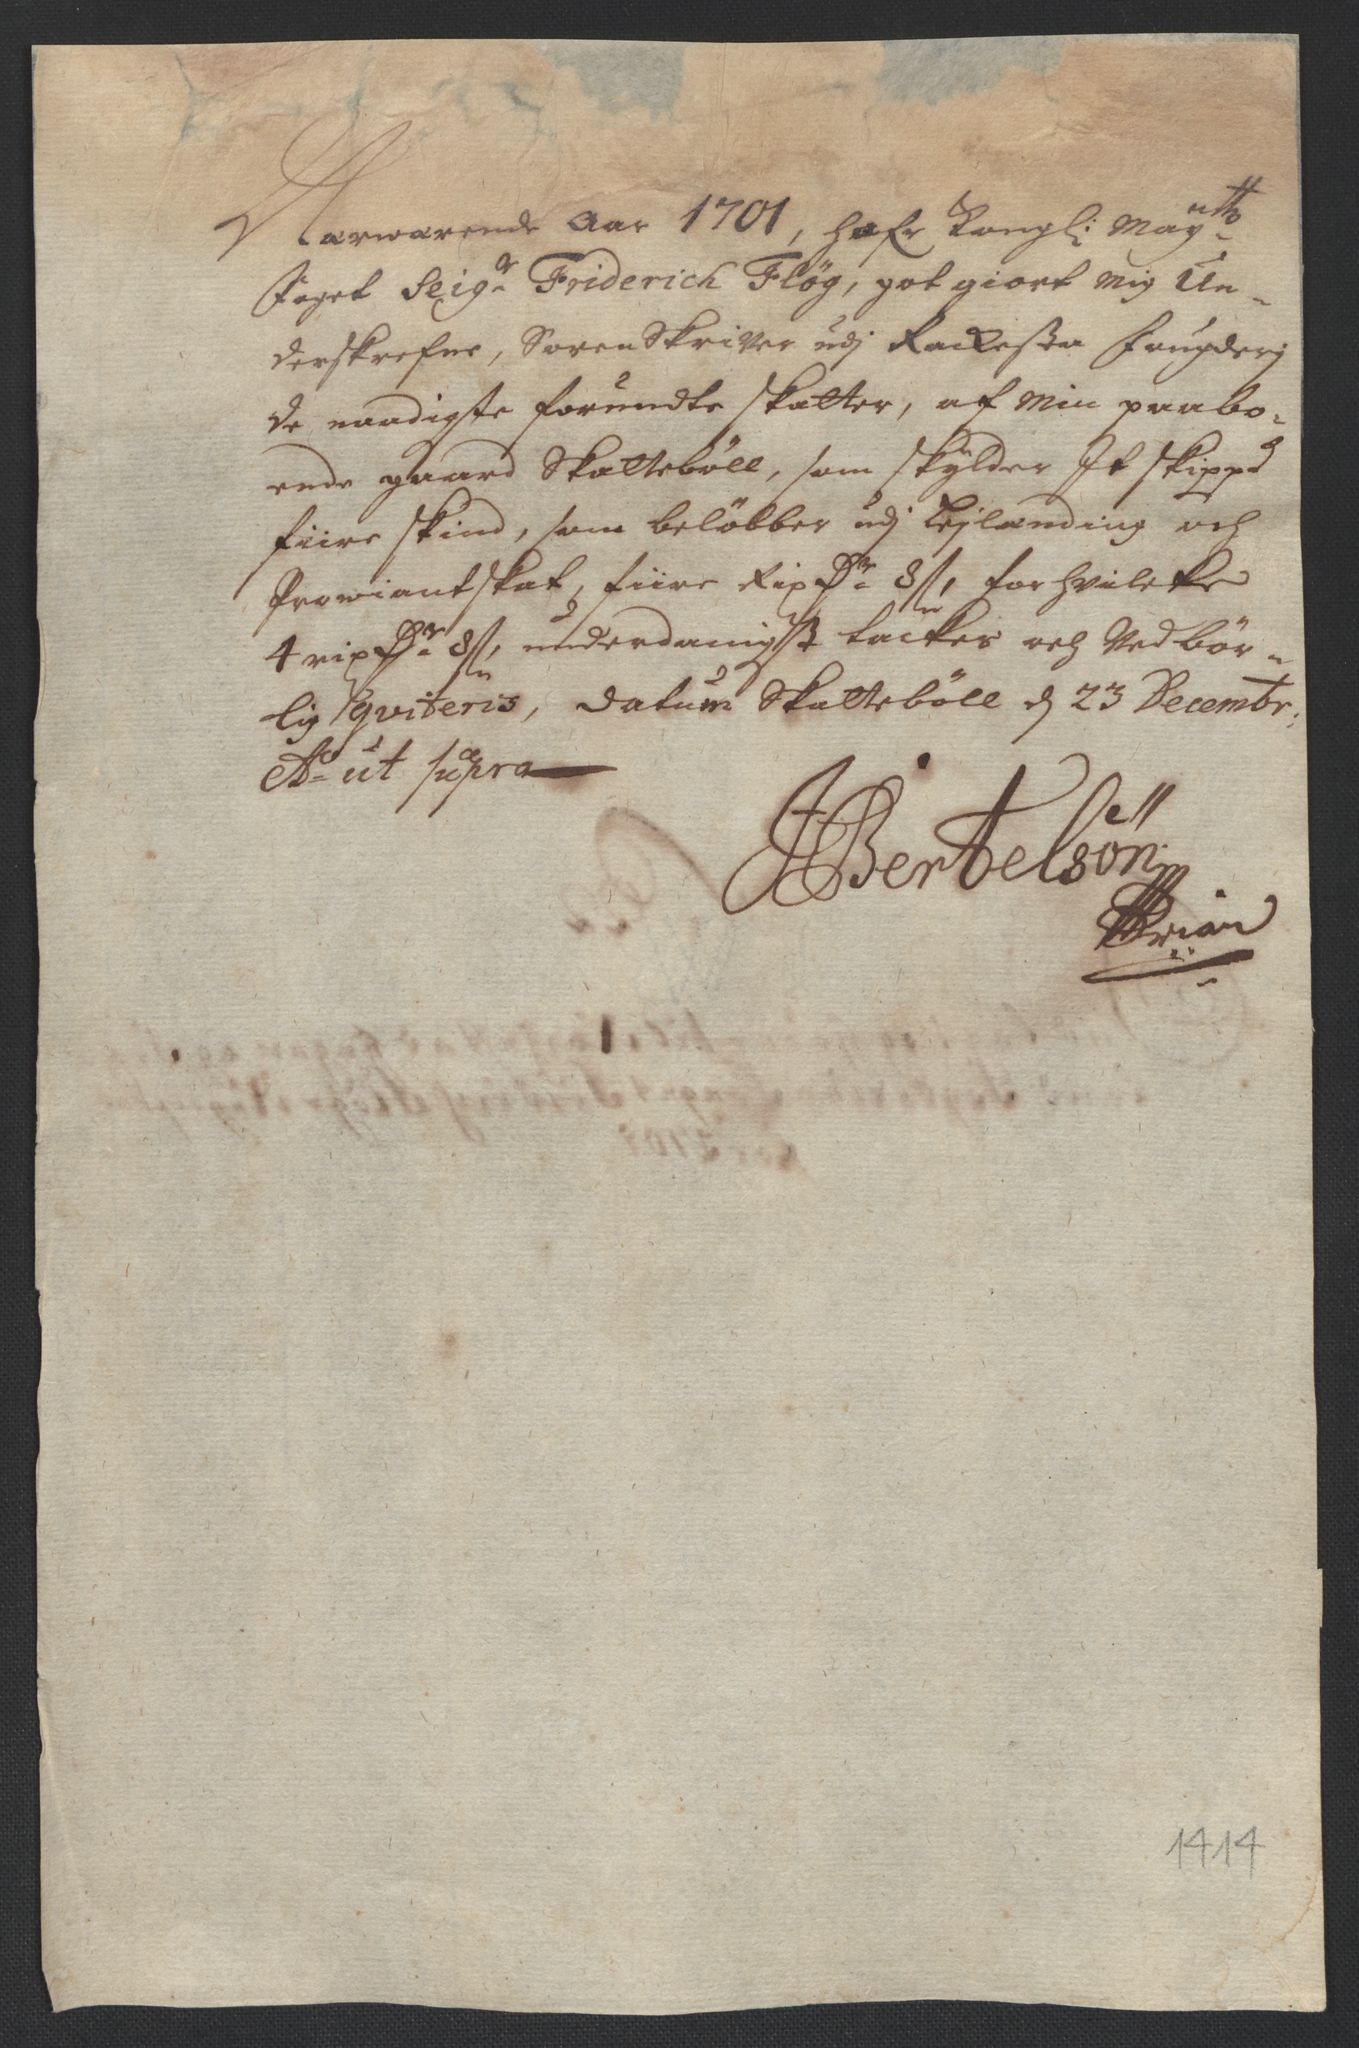 Nærwærende Aar 1701, hafr Kongli: Mayttz
Foget Seigr Friderich Fløg, got giort mig Un-
derskrefne, Sorenskriver udj Rackestha Fougderj
de naadigste forundte skatter, af min paaboe-
ende gaard Skattebøll, som skylder It skippd
fiire skind, som beløbber udj Lejlænding och
Proviantskat, fiire Rixdr 8 ß, for hvilcke
4 rixdr 8 ß, underdanigst tackes och Vedbør-
lig qviteris, Datum Skattebøll d 23 Decembr:
Ao ut supra
JBertelsön
1414